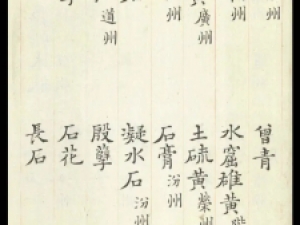 州 曾青
州 水窟雄黃
廣州 土硫黃榮州
州 石膏汾州
凝水石汾州
道州 殷孽
石花
長石